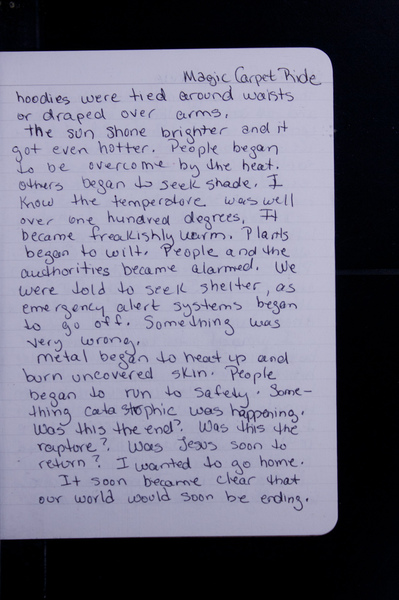 Magic Carpet Ride
hoodies were tied around waists
or draped over arms.
the sun shone brighter and it
got even hotter. People began
to be overcome by the heat.
others began to seek shade. I
know the temperature was well
over one hundred degrees. It
became freakishly warm. Plants
began to wilt. People and the
authorities became alarmed. We
were told to seek shelter, as
emergency alert systems began
to go off. Something was
very wrong.
metal began to heat up and
burn uncovered skin. People
began to run to safety. Some-
thing catastophic was happening.
Was this the end? Was this the
rapture? Was Jesus soon to
return? I wanted to go home.
It soon became clear that
our world would soon be ending.